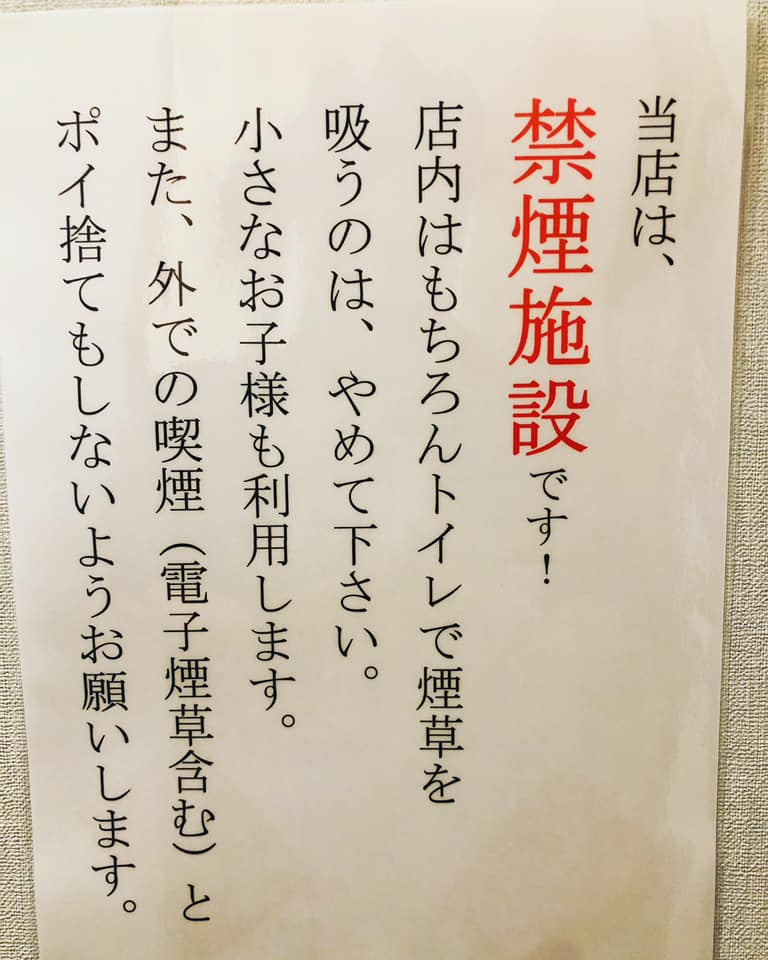 当店は、
禁煙施設です!
店内はもちろんトイレで煙草を
吸うのは、やめて下さい。
小さなお子様も利用します。
また、外での喫煙（電子煙草含む）と
ポイ捨てもしないようお願いします。